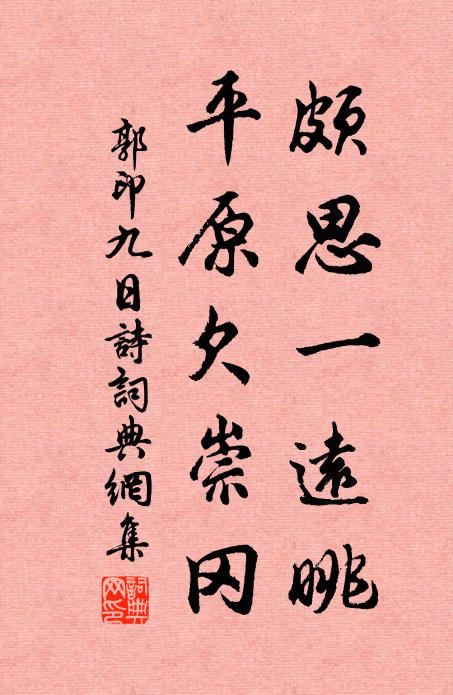 頗思一遠眺
平原欠崇冈
郭印九日詩詞典網集
詞典网印